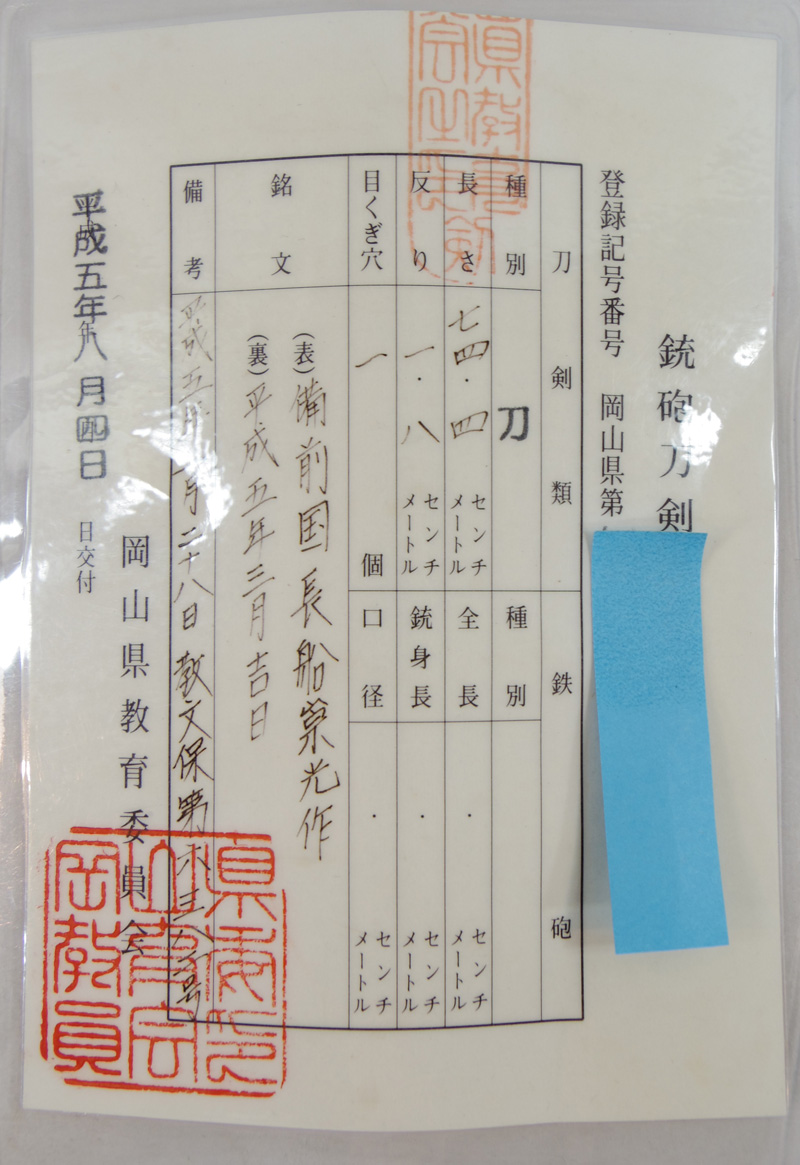 銃砲刀剣
登録記号番号 岡山県第
刀剣類
鉄砲
種別 刀
種別
長さ 七四.四 センチメートル
全長 . センチメートル
反り 一.八 センチメートル
銃身長 . センチメートル
目くぎ穴 一 個
口径 . センチメートル
銘文
(表)備前国長船栄光作
(裏)平成五年三月吉日
備考 平成五年 月二十八日教文保第六三八 号
岡山県教育委員会
平成五年八月四日
日交付
岡山県教育委員会印